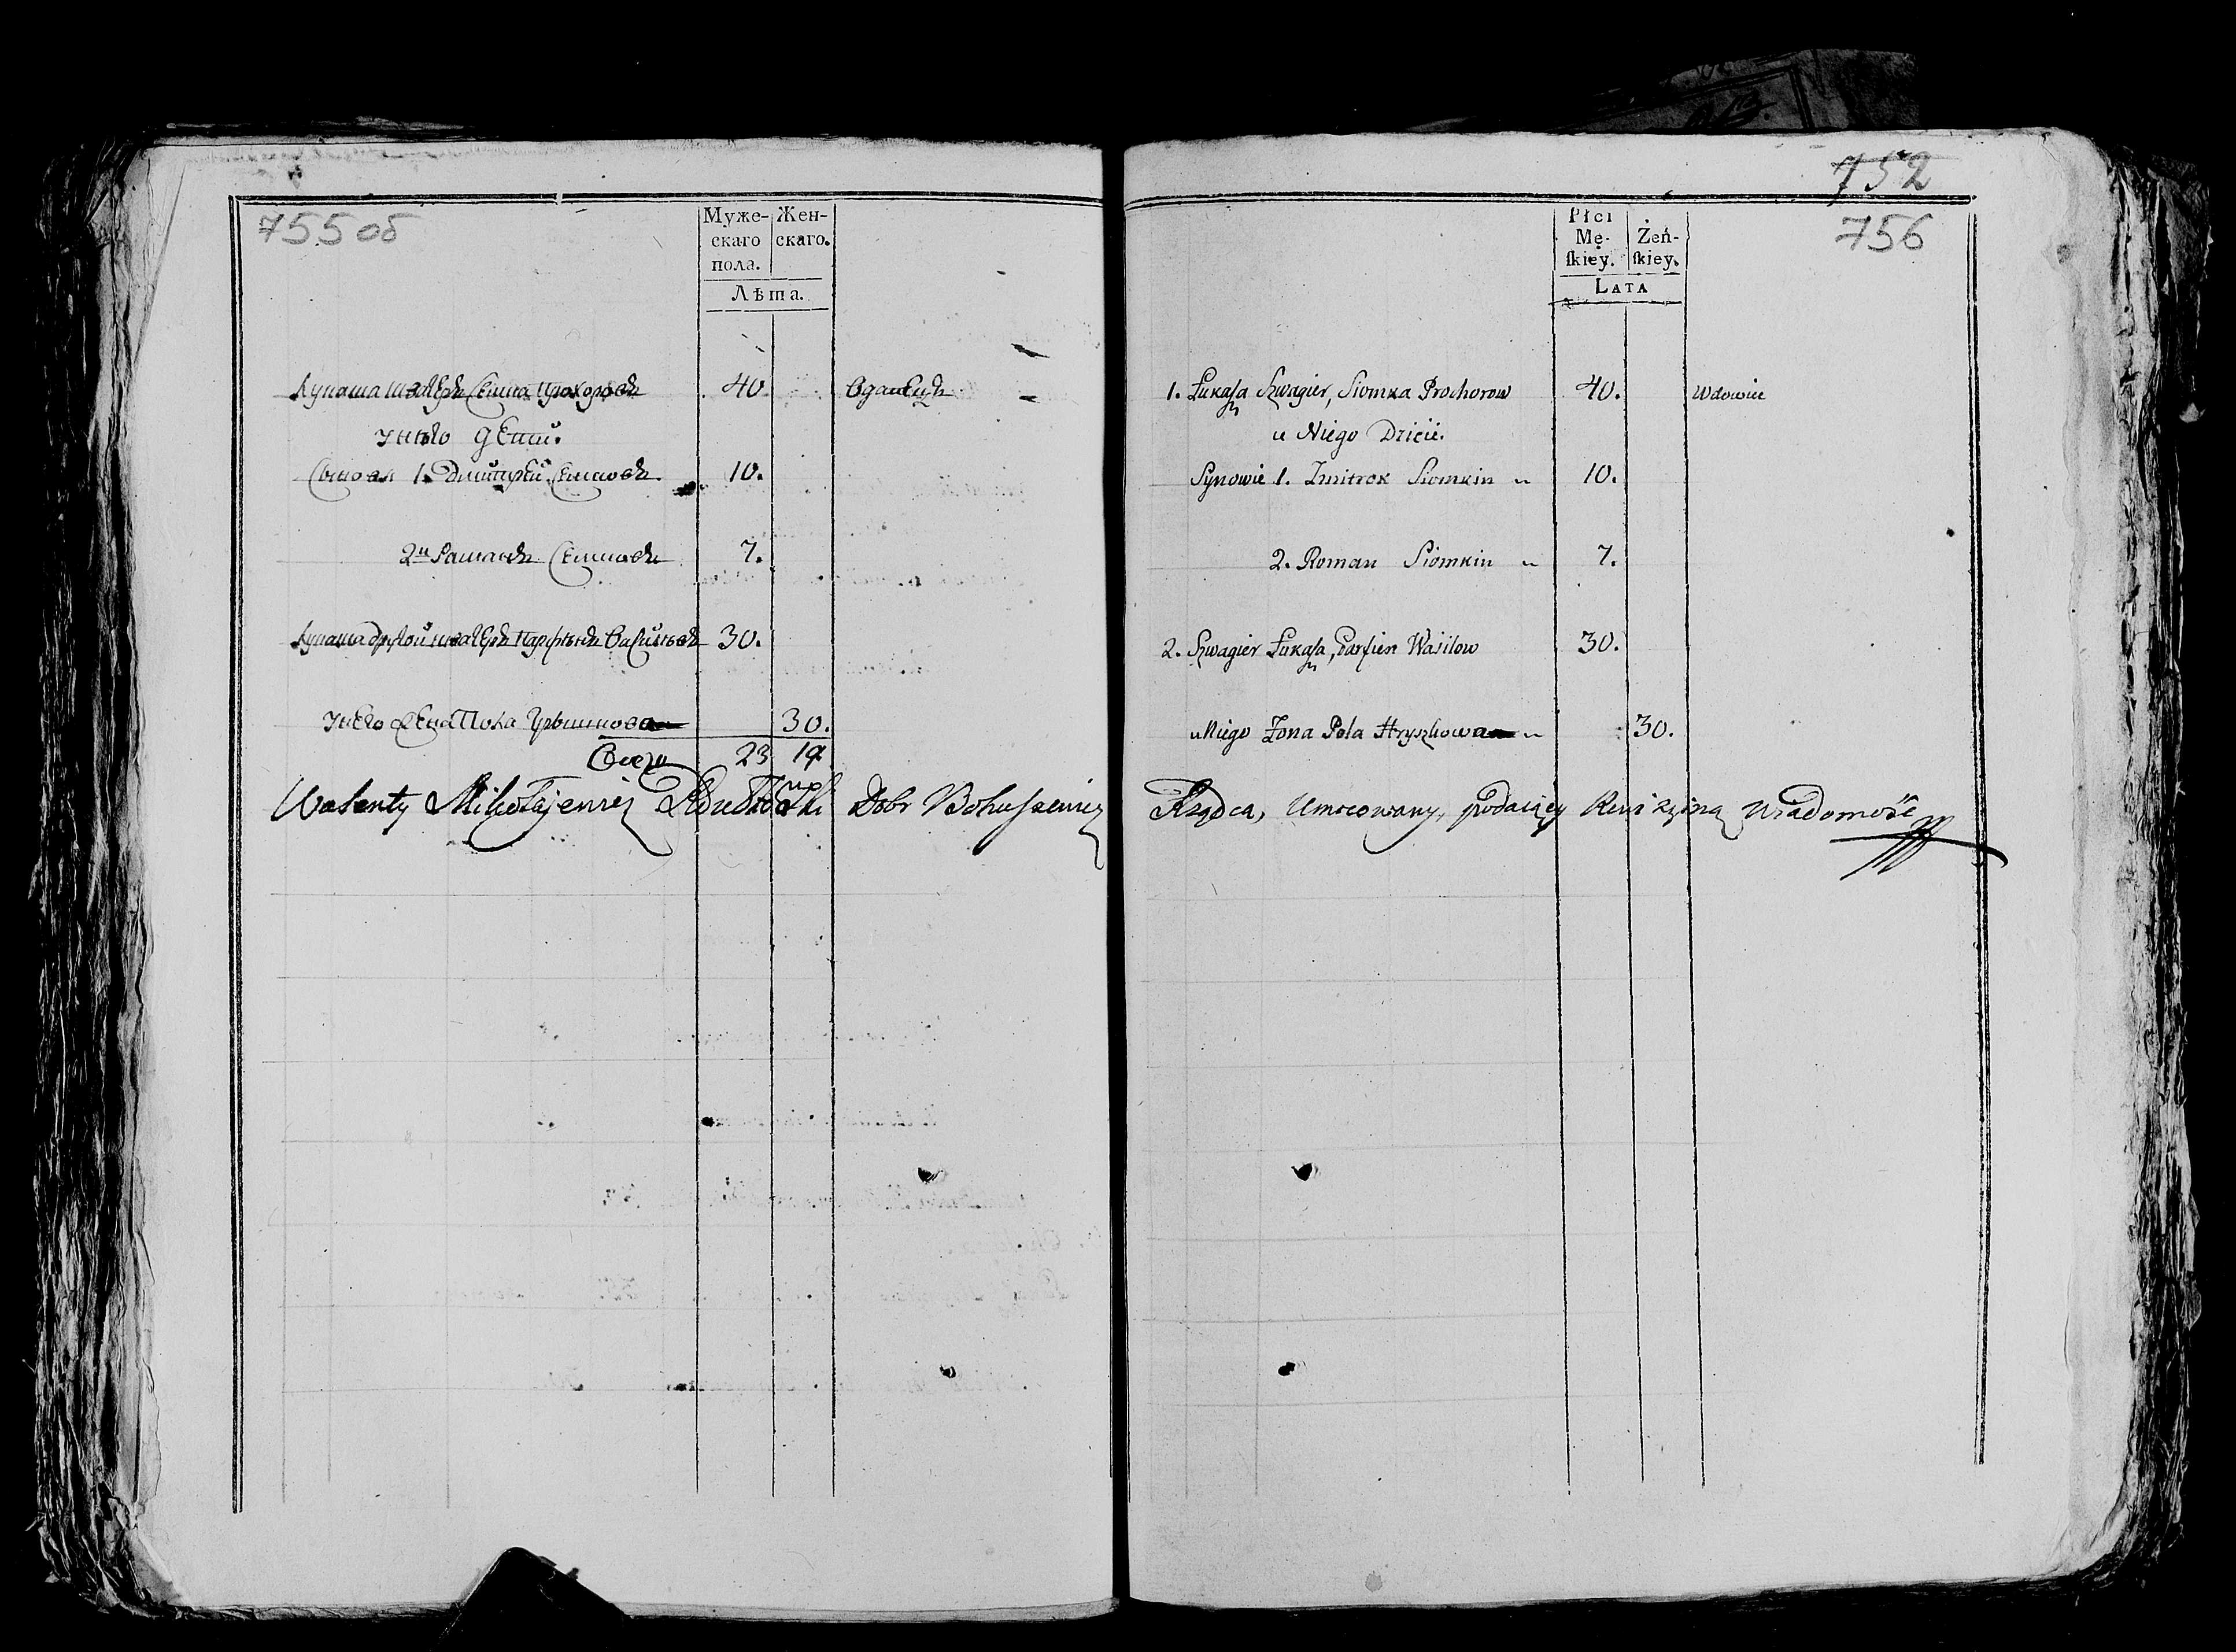 755 об
Муже- Жен-
скаго скаго.
пола.
Лѣта.
Лукаша швагеръ Семка Прохоровъ 40. Вдавецъ
унего дети.
Сыновя 1. Дмитрей Семковъ 10.
2й Раманъ Семковъ 7.
Лукаша другой швагеръ Парфѣнъ Васильевъ 30.
унего жена Пола Грышкова 30.
Всего 23 14
Walenty Mikołajewicz Dobr Bohuszewicz
752
756
Płci
Mę- Żeń-
ſkiey. ſkiey.
LATA
1. Łukaſza Szwagier, Siomka Prochorow 40. Wdowiec
u Niego Dzieci.
Synowie 1. Zmitrok Siomkin 10.
2. Roman Siomkin 7.
2. Szwagier Łukaſza, Parfien Wasilow 30.
u Niego Żona Pola Hryszkowa 30.
Rządca, Umocowany, podaiący Rewizyiną Wiadomość